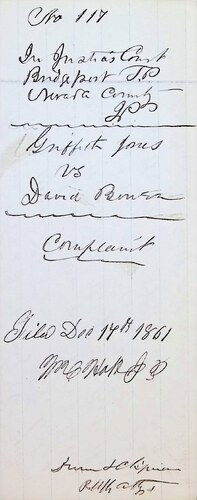 No 117
In Justices Court
Bridgeport Tp
Nevada County
Griffith Jones
vs
David Bowen
Complaint
Filed Dec 17th 1861